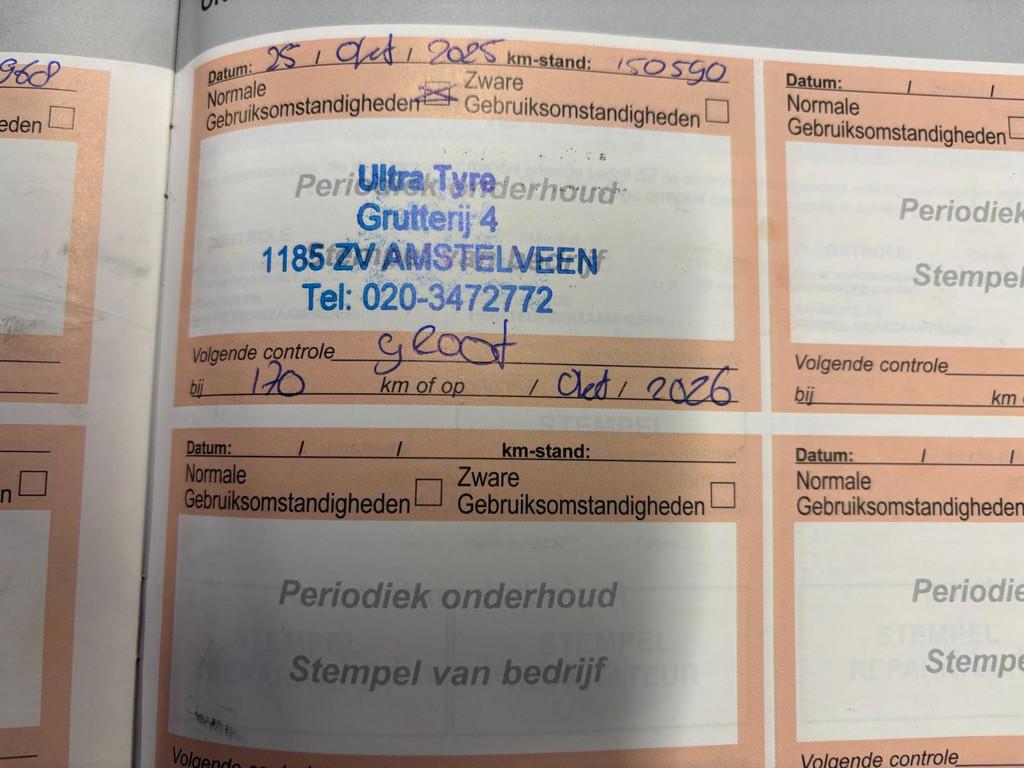 968
eden
n
Datum: 25 / Okt / 2025 km-stand: 150590
Normale Gebruiksomstandigheden Zware Gebruiksomstandigheden
Periodiek onderhoud
Ultra Tyre
Grutterij 4
1185 ZV AMSTELVEEN
Tel: 020-3472772
Volgende controle groot
bij 170 km of op / Okt / 2026
Datum: / / km-stand:
Normale Gebruiksomstandigheden Zware Gebruiksomstandigheden
Periodiek onderhoud
Stempel van bedrijf
Volgende controle
Datum: / /
Normale
Gebruiksomstandigheden
Periodiek
Stempel
Volgende controle
bij km
Datum: / /
Normale
Gebruiksomstandigheden
Periodie
Stempe
Volgende controle